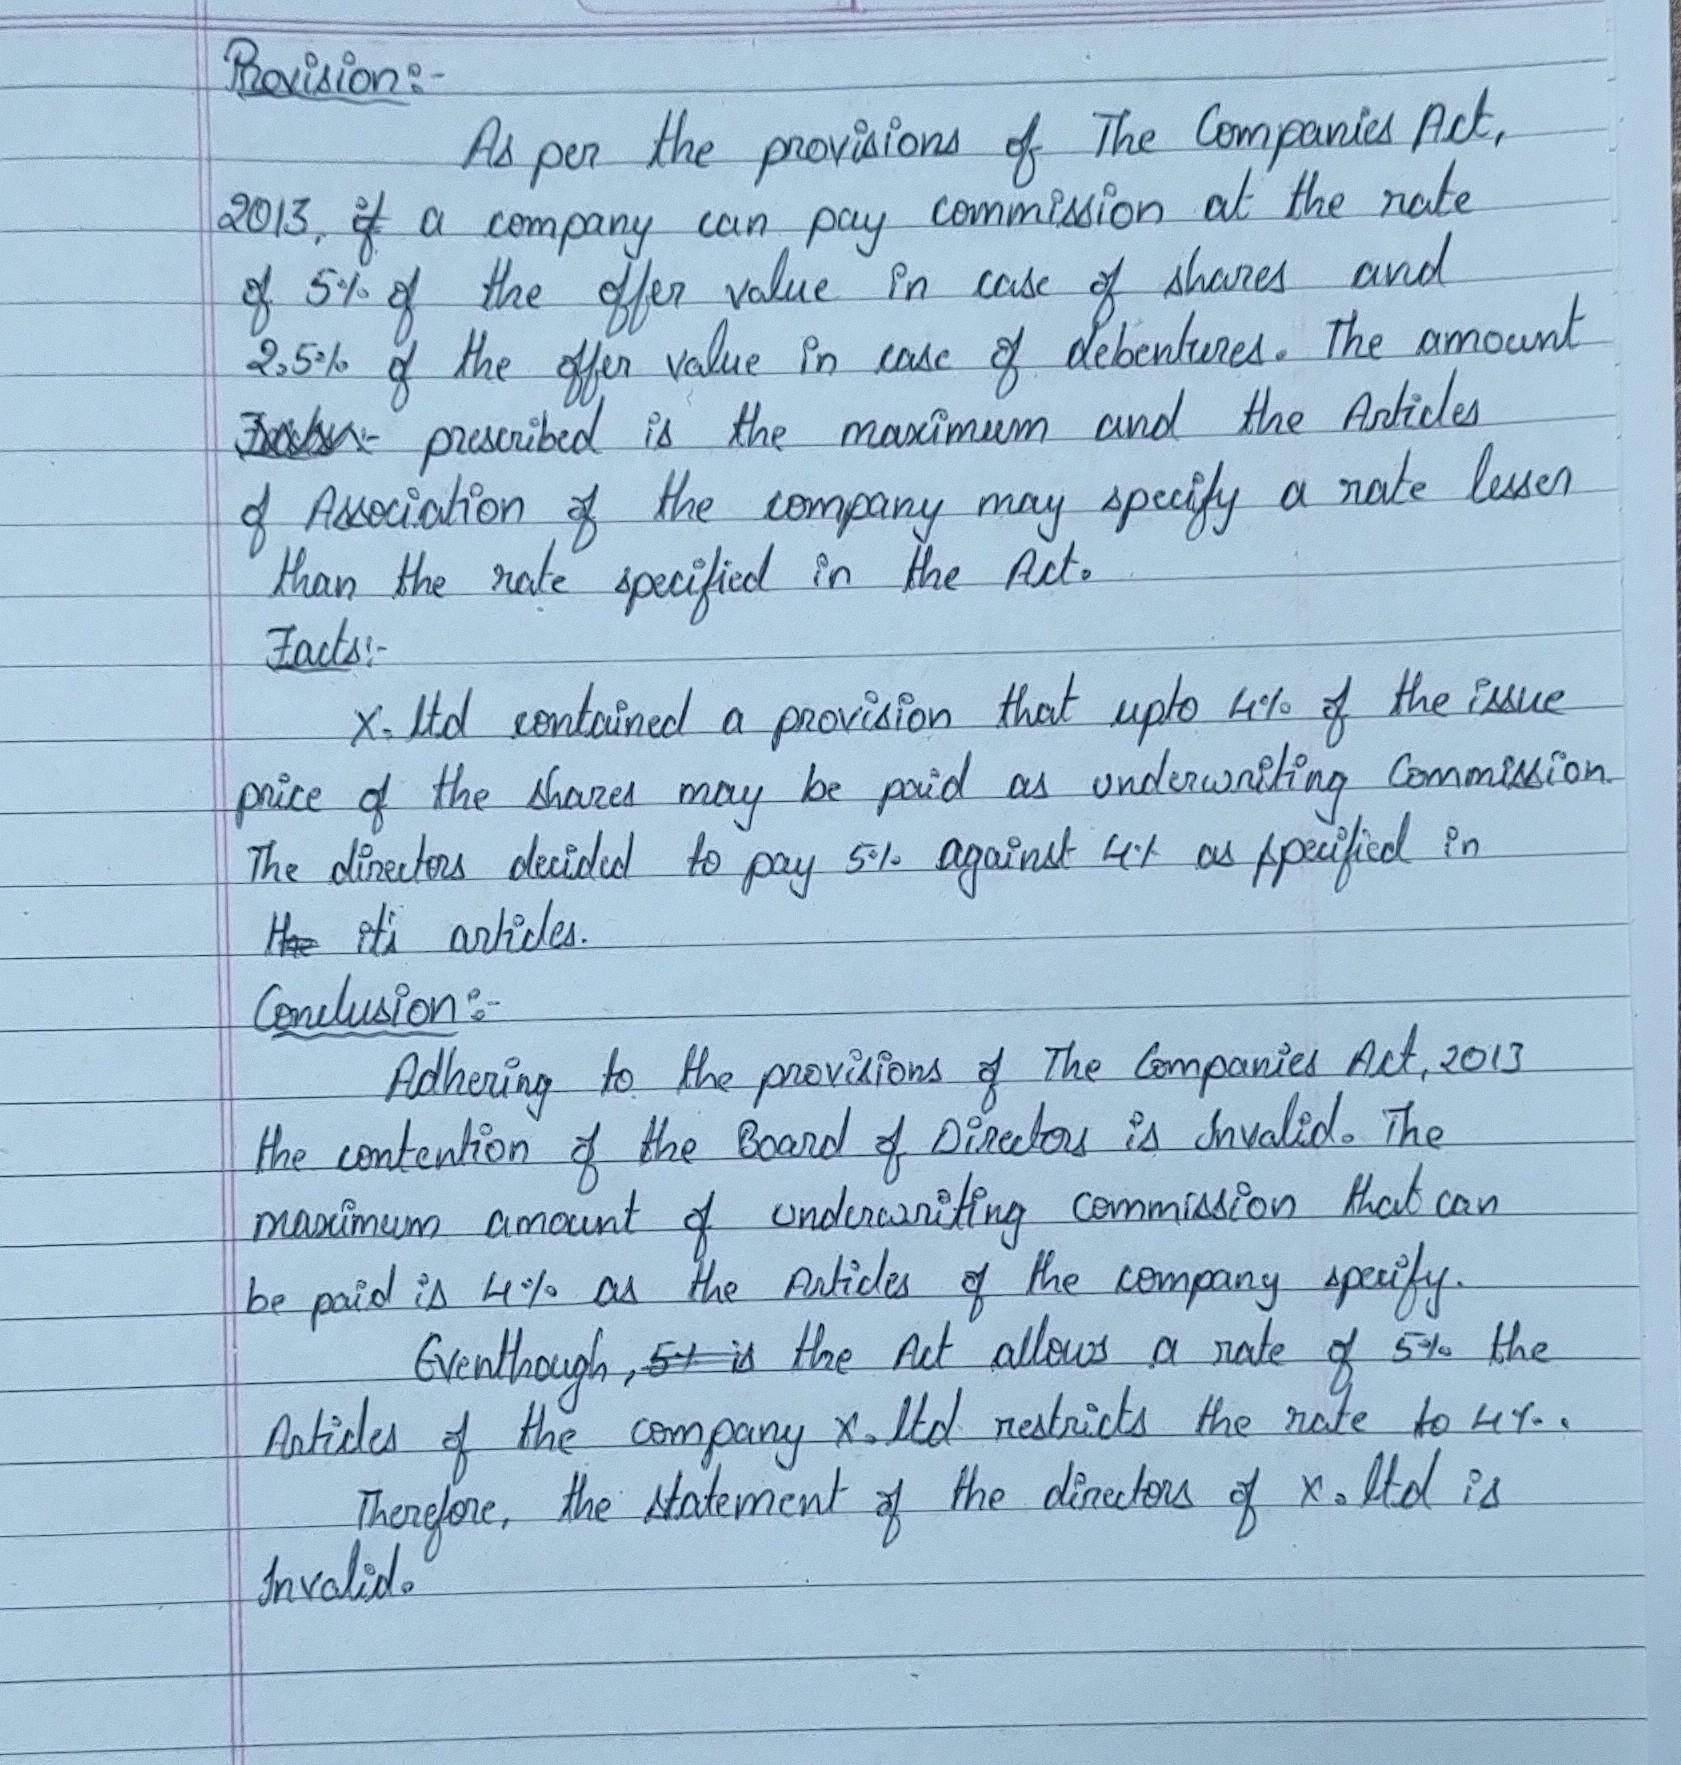 Provision:-
As per the provisions of The Companies Act,
2013, if a company can pay commission at the rate
of 5% of the offer value in case of shares and
2.5% of the offer value in case of debentures. The amount
prescribed is the maximum and the Articles
of Association of the company may specify a rate lesser
than the rate specified in the Act.
Facts:-
X. ltd contained a provision that upto 4% of the issue
price of the shares may be paid as underwriting Commission.
The directors decided to pay 5% against 4% as specified in
the its articles.
Conclusion:-
Adhering to the provisions of The Companies Act, 2013
the contention of the Board of Directors is Invalid. The
maximum amount of underwriting commission that can
be paid is 4% as the Articles of the company specify.
Eventhough, 5% is the Act allows a rate of 5% the
Articles of the company X. ltd restricts the rate to 4%.
Therefore, the statement of the directors of X. ltd is
Invalid.